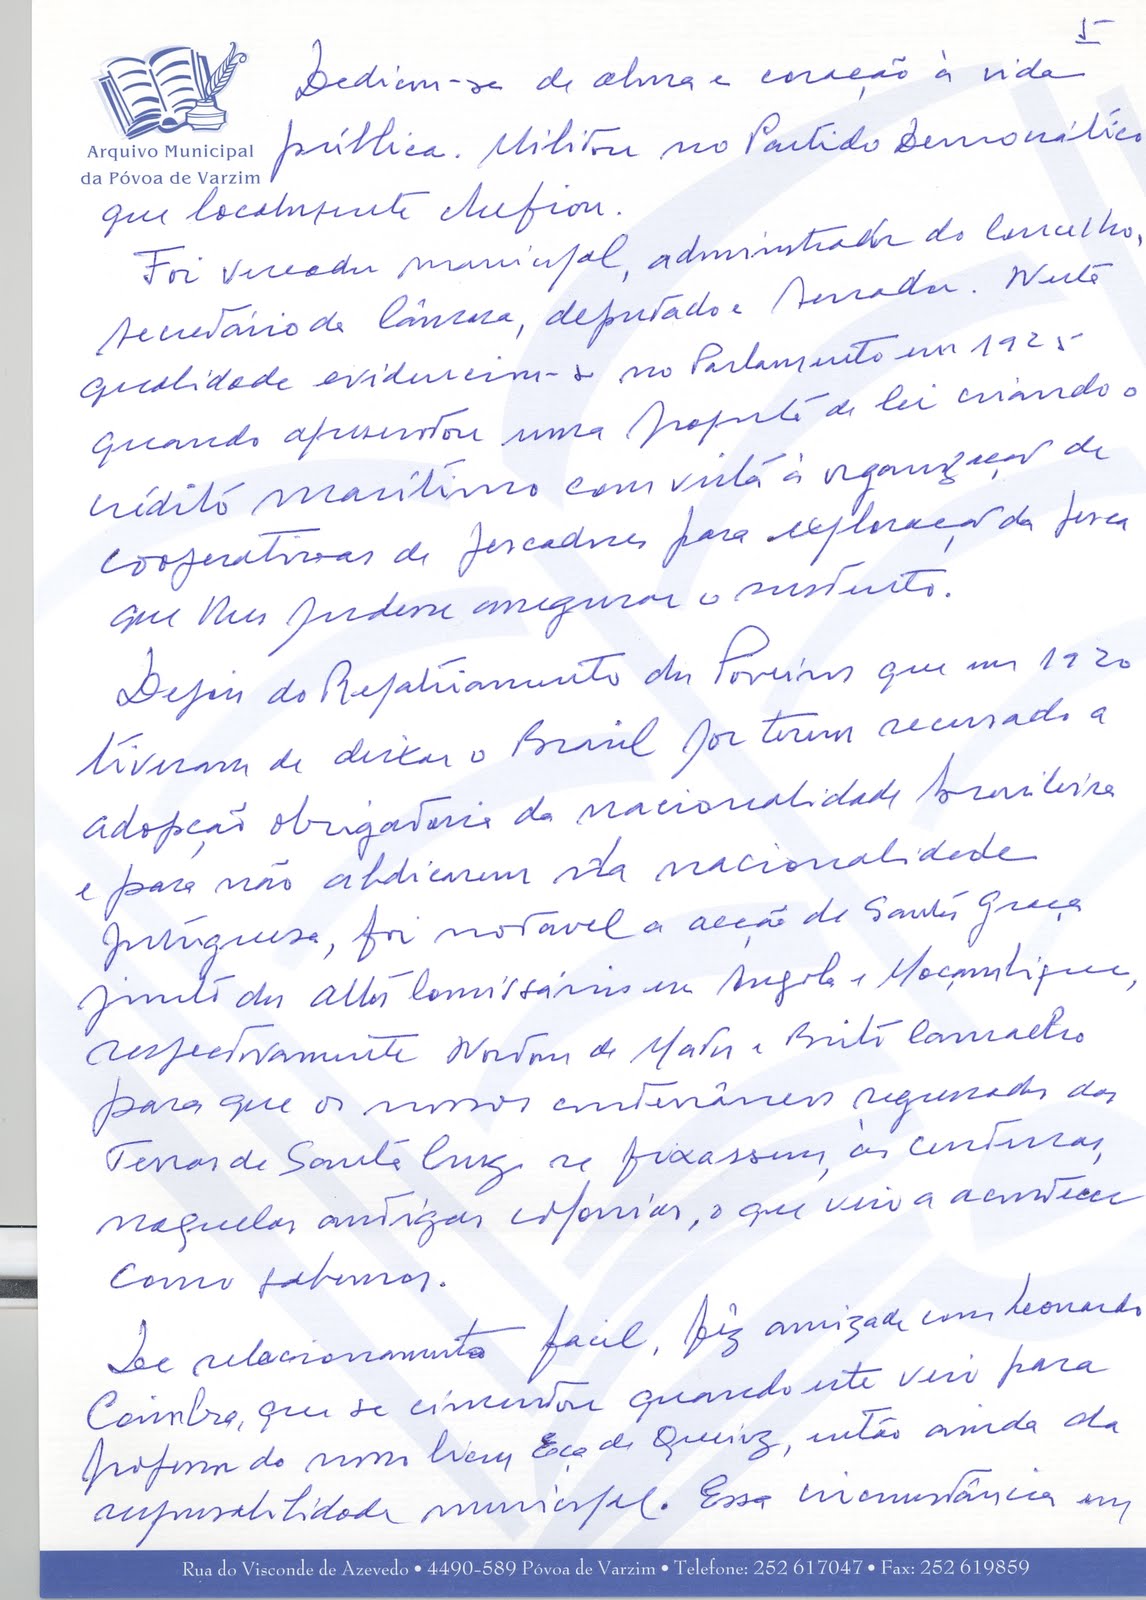 5
Arquivo Municipal
da Póvoa de Varzim
Dedicou-se de alma e coração à vida
pública. Militou no Partido Democrático
que localmente chefiou.
Foi vereador municipal, administrador do Concelho,
secretário da Câmara, deputado e senador. Nesta
qualidade evidenciou-se no Parlamento em 1925
quando apresentou uma proposta de lei criando o
crédito marítimo com vista à organização de
cooperativas de pescadores para exploração da pesca
que lhes pudesse assegurar o sustento.
Depois do Repatriamento dos Poveiros que em 1920
tiveram de deixar o Brasil por terem recusado a
adopção obrigatória da nacionalidade brasileira
e para não abdicarem da nacionalidade
portuguesa, foi notável a acção de Santos Graça
junto dos Altos Comissários em Angola e Moçambique,
respectivamente Norton de Matos e Brito Camacho
para que os nossos conterrâneos regressados das
Terras de Santa Cruz se fixassem, às centenas,
naquelas antigas colónias, o que veio a acontecer
como sabemos.
De relacionamento fácil, fêz amizade com Leonardo
Coimbra, que se cimentou quando este veio para
professor do nosso liceu Eça de Queiroz, então ainda da
responsabilidade municipal. Essa circunstância em
Rua do Visconde de Azevedo • 4490-589 Póvoa de Varzim • Telefone: 252 617047 • Fax: 252 619859